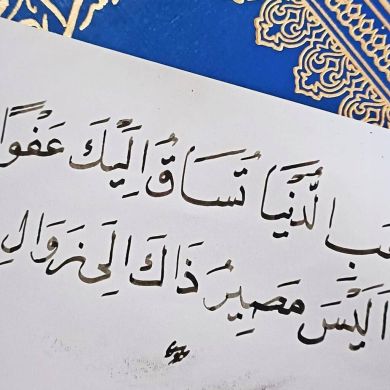 الدُّنْيَا تُسَاقُ اِلَيْكَ عَفْوًا
اَلَيْسَ مَصِيرُ ذَاكَ اِلَى زَوَالِ